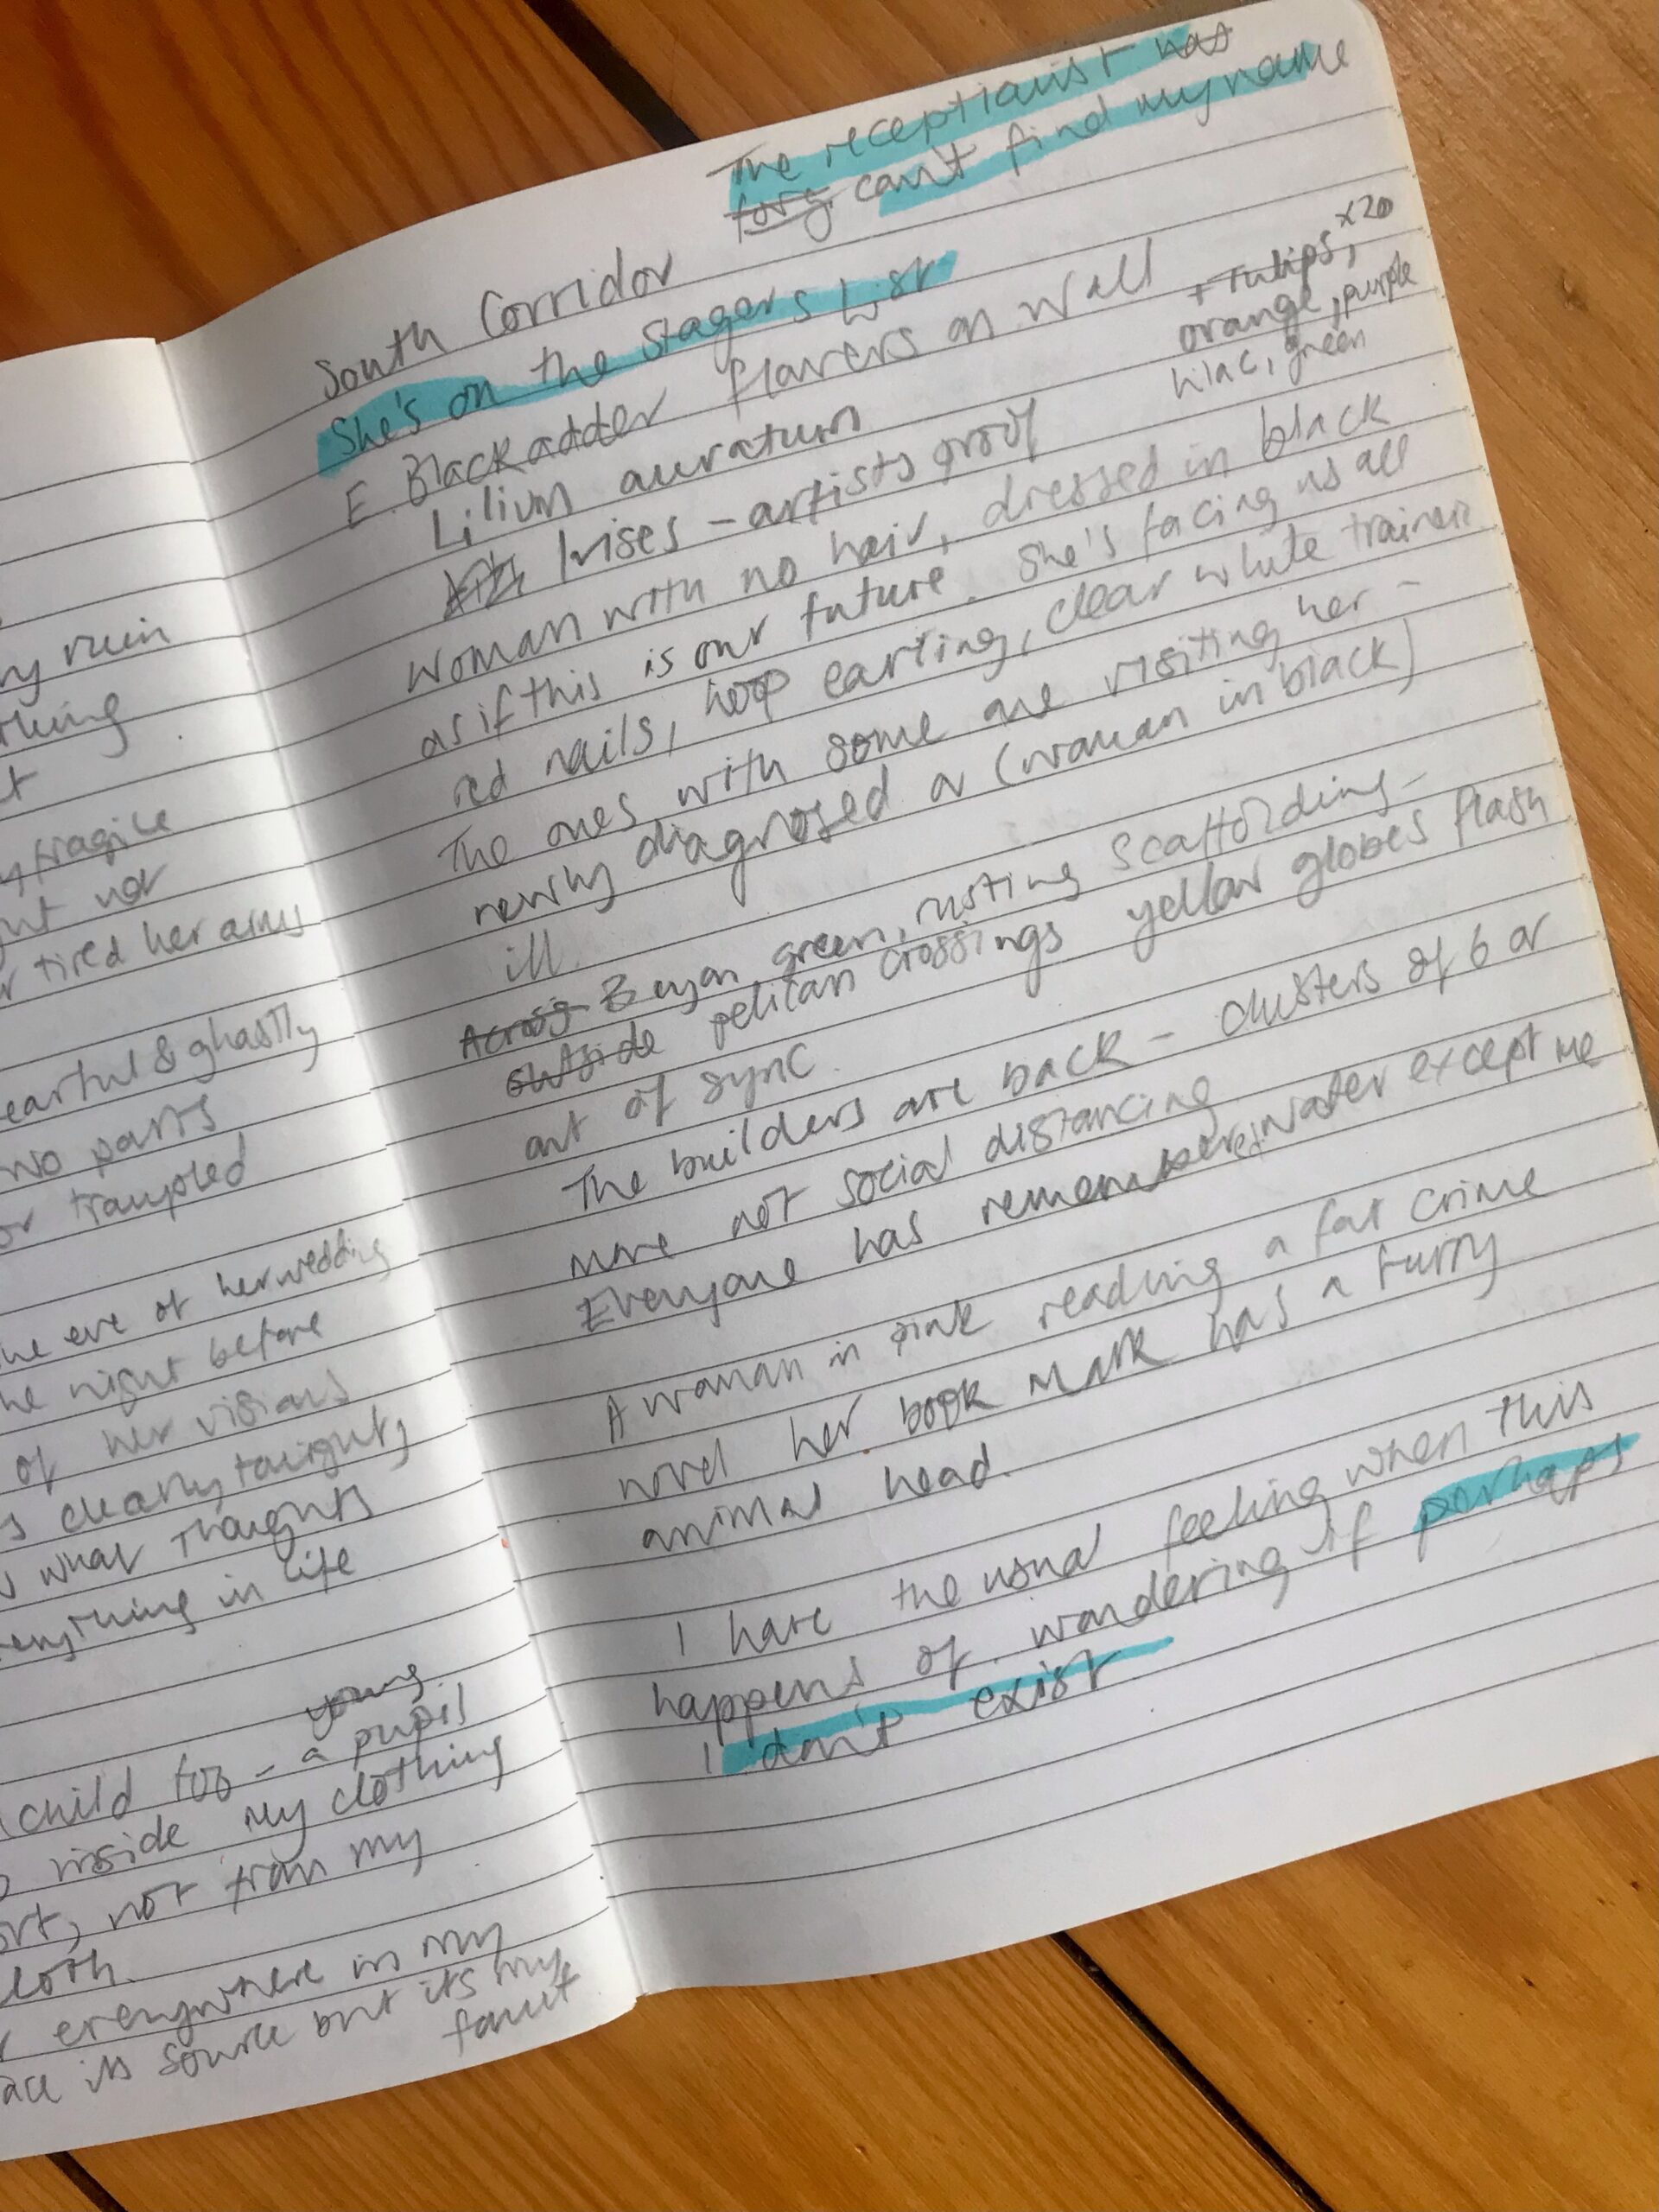 ny ruin
thing
t
y fragile
but not
or tired her arms
earful & ghastly
two parts
or trampled
he eve of her wedding
he night before
of her visions
s clearly tonight,
what thoughts
erything in life
young
child too - a pupil
inside my clothing
ort, not from my
cloth.
everywhere in my
ace its source but its my
fault
The receptionist has
forg. can't find my name
South Corridor
She's on the Stagers List
E. Blackadder flowers on wall
+ Tulips, x20
orange, purple
lilac, green
Lilium auratum
Irises - artists proof
Woman with no hair, dressed in black
as if this is our future. She's facing us all
red nails, hoop earring, clear white trainers
The ones with some are visiting her -
newly diagnosed or (woman in black)
ill.
Across Beyon green, rusting scaffolding -
outside pelican crossings yellow globes flash
out of sync.
The builders are back - clusters of 6 or
more not social distancing
Everyone has remembered water except me
A woman in pink reading a fat crime
novel her book mark has a furry
animal head.
I have the usual feeling when this
happens of wondering if perhaps
I don't exist